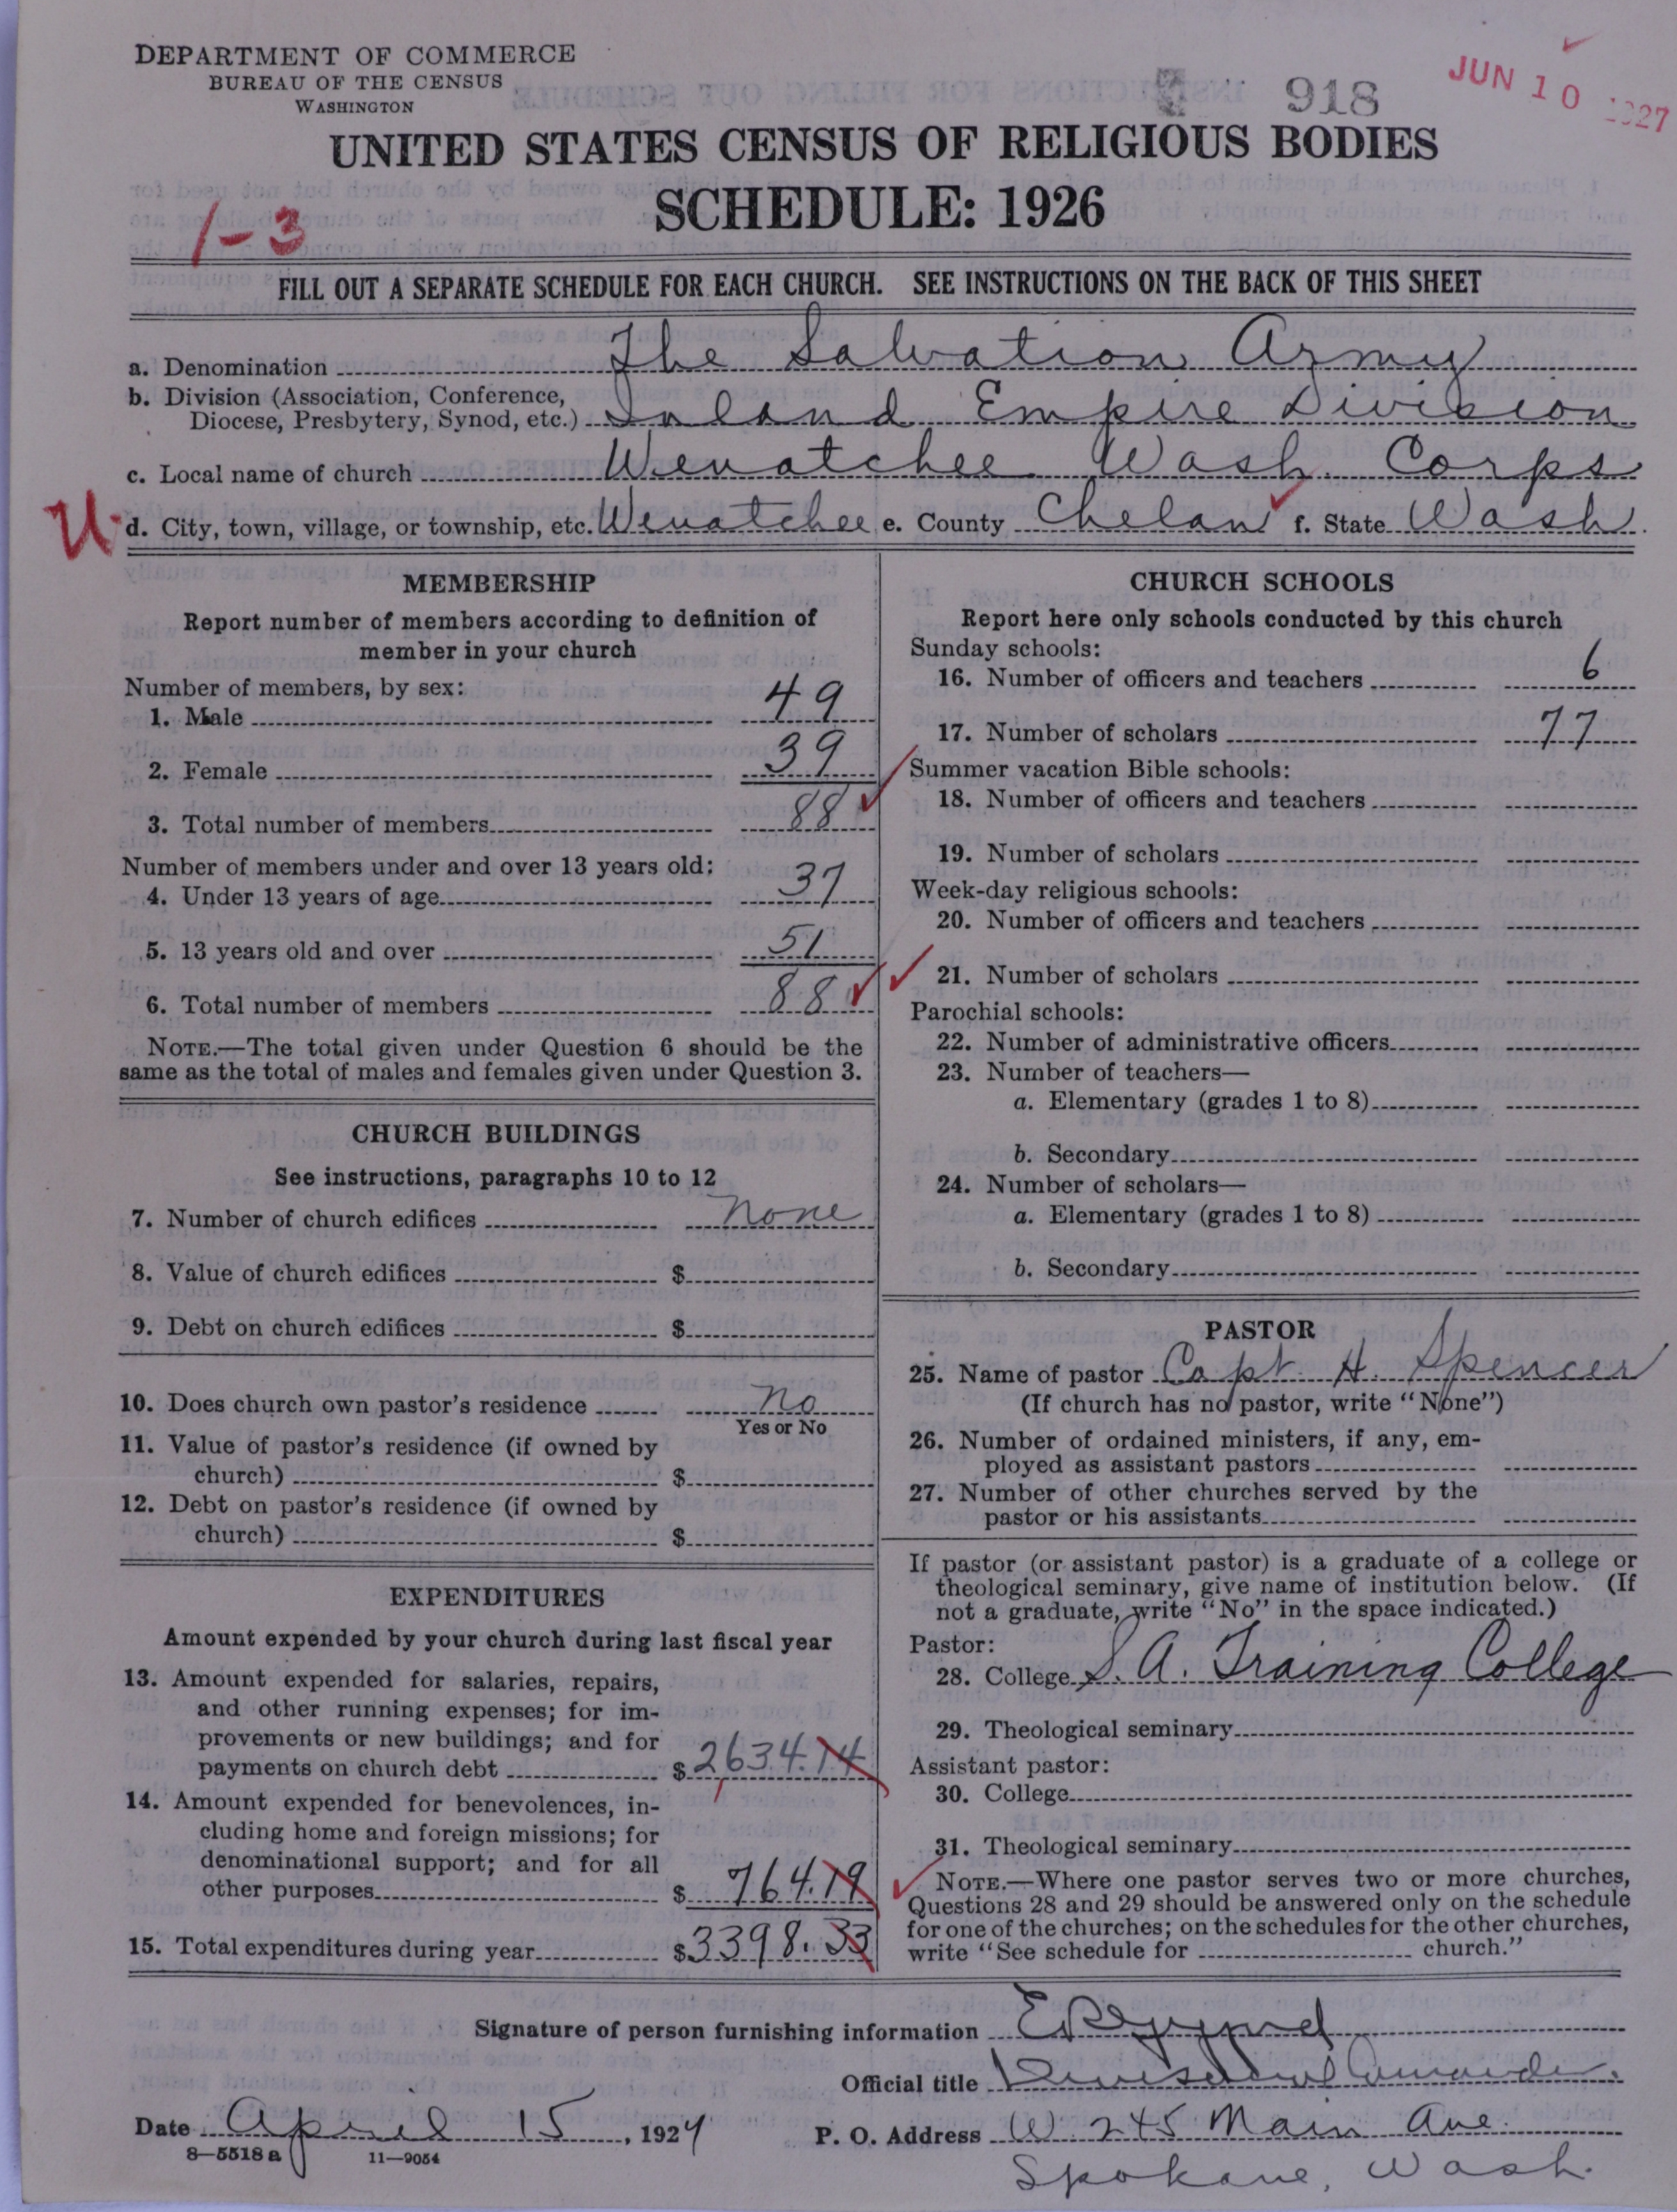 DEPARTMENT OF COMMERCE
BUREAU OF THE CENSUS
WASHINGTON
918
JUN 10 1927
UNITED STATES CENSUS OF RELIGIOUS BODIES
SCHEDULE: 1926
1-3
FILL OUT A SEPARATE SCHEDULE FOR EACH CHURCH. SEE INSTRUCTIONS ON THE BACK OF THIS SHEET
a. Denomination The Salvation Army
b. Division (Association, Conference,
Diocese, Presbytery, Synod, etc.) Inland Empire Division
c. Local name of church Wenatchee Wash. Corps
U d. City, town, village, or township, etc. Wenatchee e. County Chelan f. State Wash.
MEMBERSHIP
Report number of members according to definition of
member in your church
Number of members, by sex:
1. Male 49
2. Female 39
3. Total number of members 88
Number of members under and over 13 years old:
4. Under 13 years of age 37
5. 13 years old and over 51
6. Total number of members 88
NOTE.—The total given under Question 6 should be the
same as the total of males and females given under Question 3.
CHURCH BUILDINGS
See instructions, paragraphs 10 to 12
7. Number of church edifices none
8. Value of church edifices $
9. Debt on church edifices $
10. Does church own pastor's residence no
Yes or No
11. Value of pastor's residence (if owned by
church) $
12. Debt on pastor's residence (if owned by
church) $
EXPENDITURES
Amount expended by your church during last fiscal year
13. Amount expended for salaries, repairs,
and other running expenses; for im-
provements or new buildings; and for
payments on church debt $2634.14
14. Amount expended for benevolences, in-
cluding home and foreign missions; for
denominational support; and for all
other purposes $ 764.19
15. Total expenditures during year $3398.33
CHURCH SCHOOLS
Report here only schools conducted by this church
Sunday schools:
16. Number of officers and teachers 6
17. Number of scholars 77
Summer vacation Bible schools:
18. Number of officers and teachers
19. Number of scholars
Week-day religious schools:
20. Number of officers and teachers
21. Number of scholars
Parochial schools:
22. Number of administrative officers
23. Number of teachers—
a. Elementary (grades 1 to 8)
b. Secondary
24. Number of scholars—
a. Elementary (grades 1 to 8)
b. Secondary
PASTOR
25. Name of pastor Capt. H. Spencer
(If church has no pastor, write "None")
26. Number of ordained ministers, if any, em-
ployed as assistant pastors
27. Number of other churches served by the
pastor or his assistants
If pastor (or assistant pastor) is a graduate of a college or
theological seminary, give name of institution below. (If
not a graduate, write "No" in the space indicated.)
Pastor:
28. College S. A. Training College
29. Theological seminary
Assistant pastor:
30. College
31. Theological seminary
NOTE.—Where one pastor serves two or more churches,
Questions 28 and 29 should be answered only on the schedule
for one of the churches; on the schedules for the other churches,
write "See schedule for church."
Signature of person furnishing information
Official title Divisional Commander.
Date April 15, 1927
P. O. Address W. 245 Main Ave.
8—5518a 11—9054
Spokane, Wash.